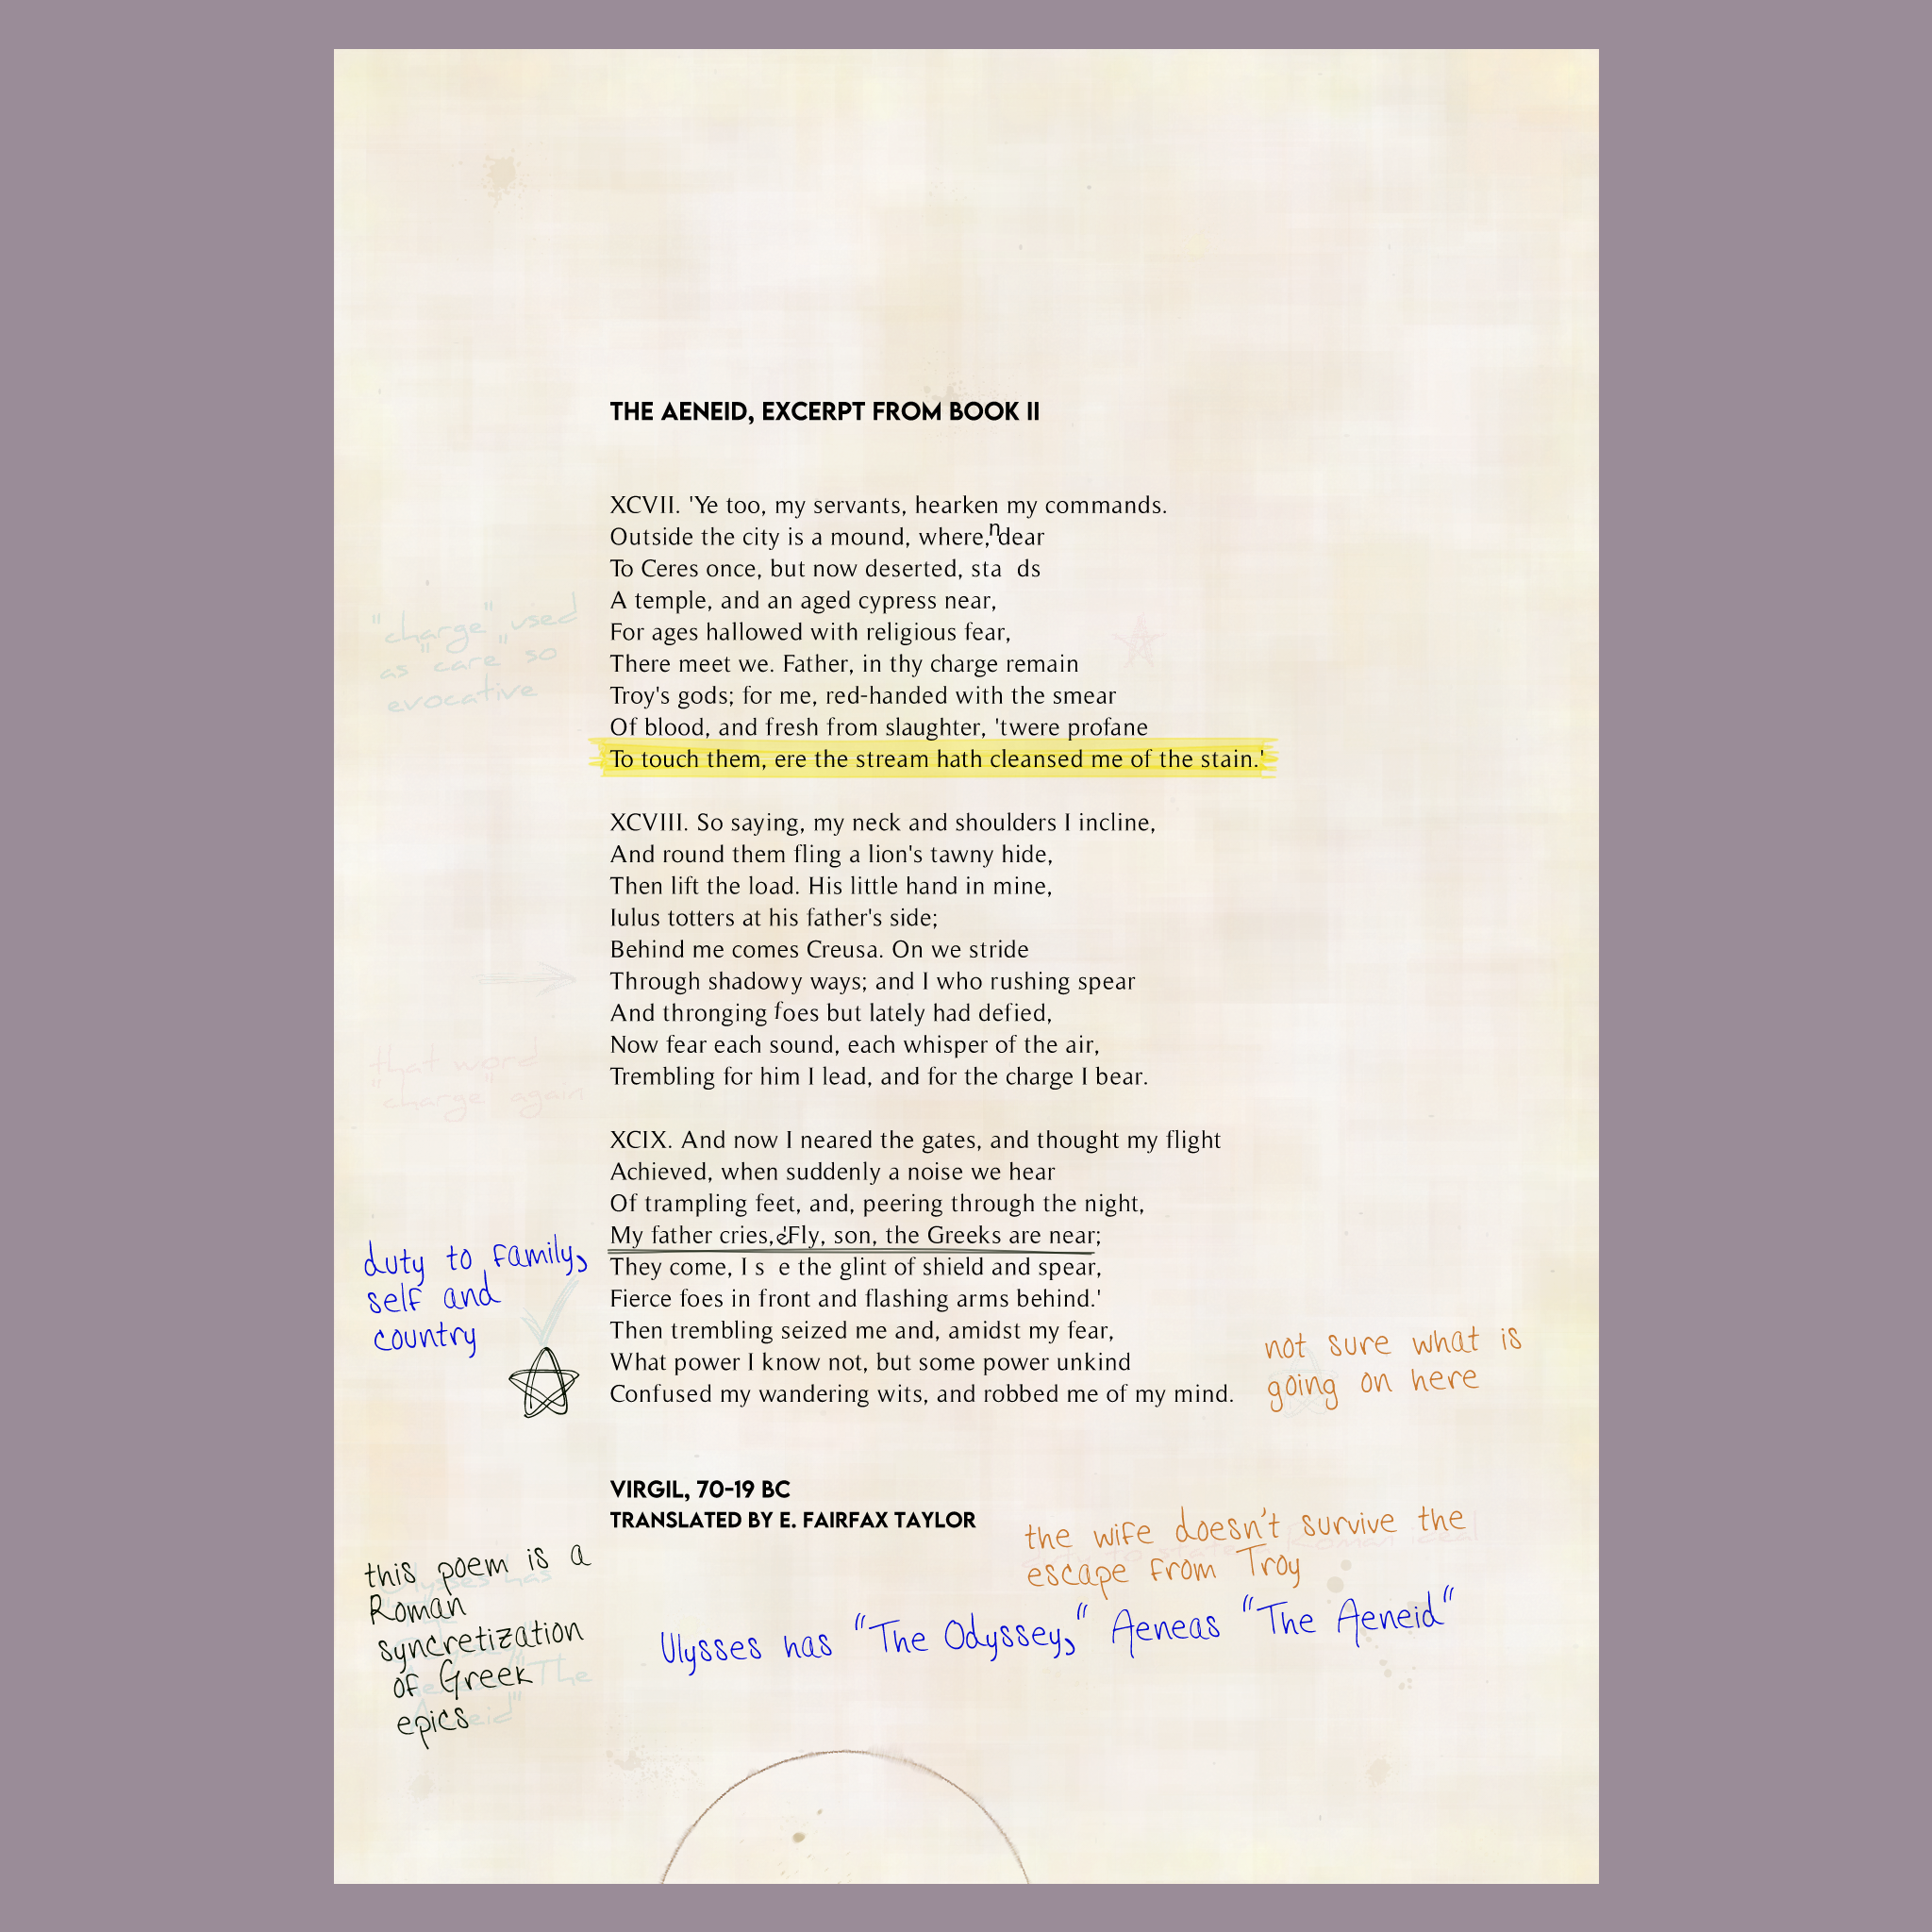 THE AENEID, EXCERPT FROM BOOK II
XCVII. 'Ye too, my servants, hearken my commands.
Outside the city is a mound, where,ndear
To Ceres once, but now deserted, sta ds
A temple, and an aged cypress near,
For ages hallowed with religious fear,
There meet we. Father, in thy charge remain
Troy's gods; for me, red-handed with the smear
Of blood, and fresh from slaughter, 'twere profane
To touch them, ere the stream hath cleansed me of the stain.'
"charge" used
as "care" so
evocative
XCVIII. So saying, my neck and shoulders I incline,
And round them fling a lion's tawny hide,
Then lift the load. His little hand in mine,
Iulus totters at his father's side;
Behind me comes Creusa. On we stride
Through shadowy ways; and I who rushing spear
And thronging foes but lately had defied,
Now fear each sound, each whisper of the air,
Trembling for him I lead, and for the charge I bear.
that word
"charge" again
XCIX. And now I neared the gates, and thought my flight
Achieved, when suddenly a noise we hear
Of trampling feet, and, peering through the night,
My father cries,e'Fly, son, the Greeks are near;
They come, I s e the glint of shield and spear,
Fierce foes in front and flashing arms behind.'
Then trembling seized me and, amidst my fear,
What power I know not, but some power unkind
Confused my wandering wits, and robbed me of my mind.
duty to family,
self and
country
not sure what is
going on here
VIRGIL, 70-19 BC
TRANSLATED BY E. FAIRFAX TAYLOR
the wife doesn't survive the
escape from Troy
duty to state a Roman ideal
this poem is a
Roman
syncretization
of Greek
epics
Ulysses has "The Odyssey," Aeneas "The Aeneid"